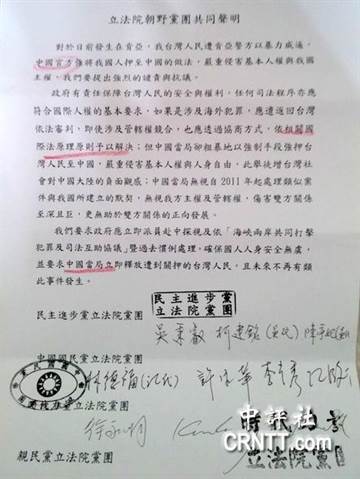 立法院朝野黨團共同聲明
對於日前發生在肯亞，我台灣人民遭肯亞警方以暴力威逼，
中國官方俥將我國人押至中國的做法，嚴重侵害基本人權與我國
主權，我們要提出強烈的譴責與抗議。
政府有責任保障台灣人民的安全與權利，任何司法程序亦應
符合國際人權的基本要求，如果是涉及海外犯罪，應遣返回台灣
依法審判，即使涉及管轄權競合，也應透過協商方式，依相關國
際法原理原則予以解決；但中國當局卻粗暴地以強制手段強押台
灣人民至中國，嚴重侵害基本人權與人身自由，此舉統增台灣社
會對中國大陸的負面觀感；中國當局無視自2011年起處理類似案
件與我國所建立的默契，無視我方主權及管轄權，傷害雙方關係
至深且巨，更無助於雙方關係的正向發展。
我們要求政府應立即派員赴中探視及依「海峽兩岸共同打擊
犯罪及司法互助協議」暨過去慣例處理，確保國人人身安全無虞，
並要求中國當局立即釋放遭到關押的台灣人民，且未來不再有類
此事件發生。
民主進步黨
立法院黨團
民主進步黨立法院黨團
吳秉叡 柯建銘
中國國民黨立法院黨團
林德福
時代力量立法院黨團
徐永明
時代力量
立法院黨
親民黨立法院黨團
中評社
CRNTT.com